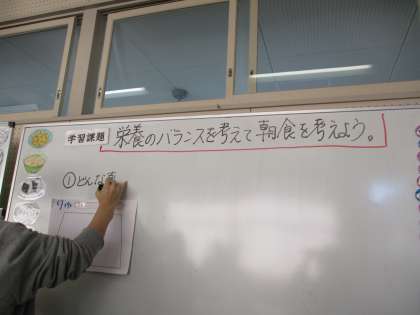 学習課題
栄養のバランスを考えて朝食を考えよう。
①どんな